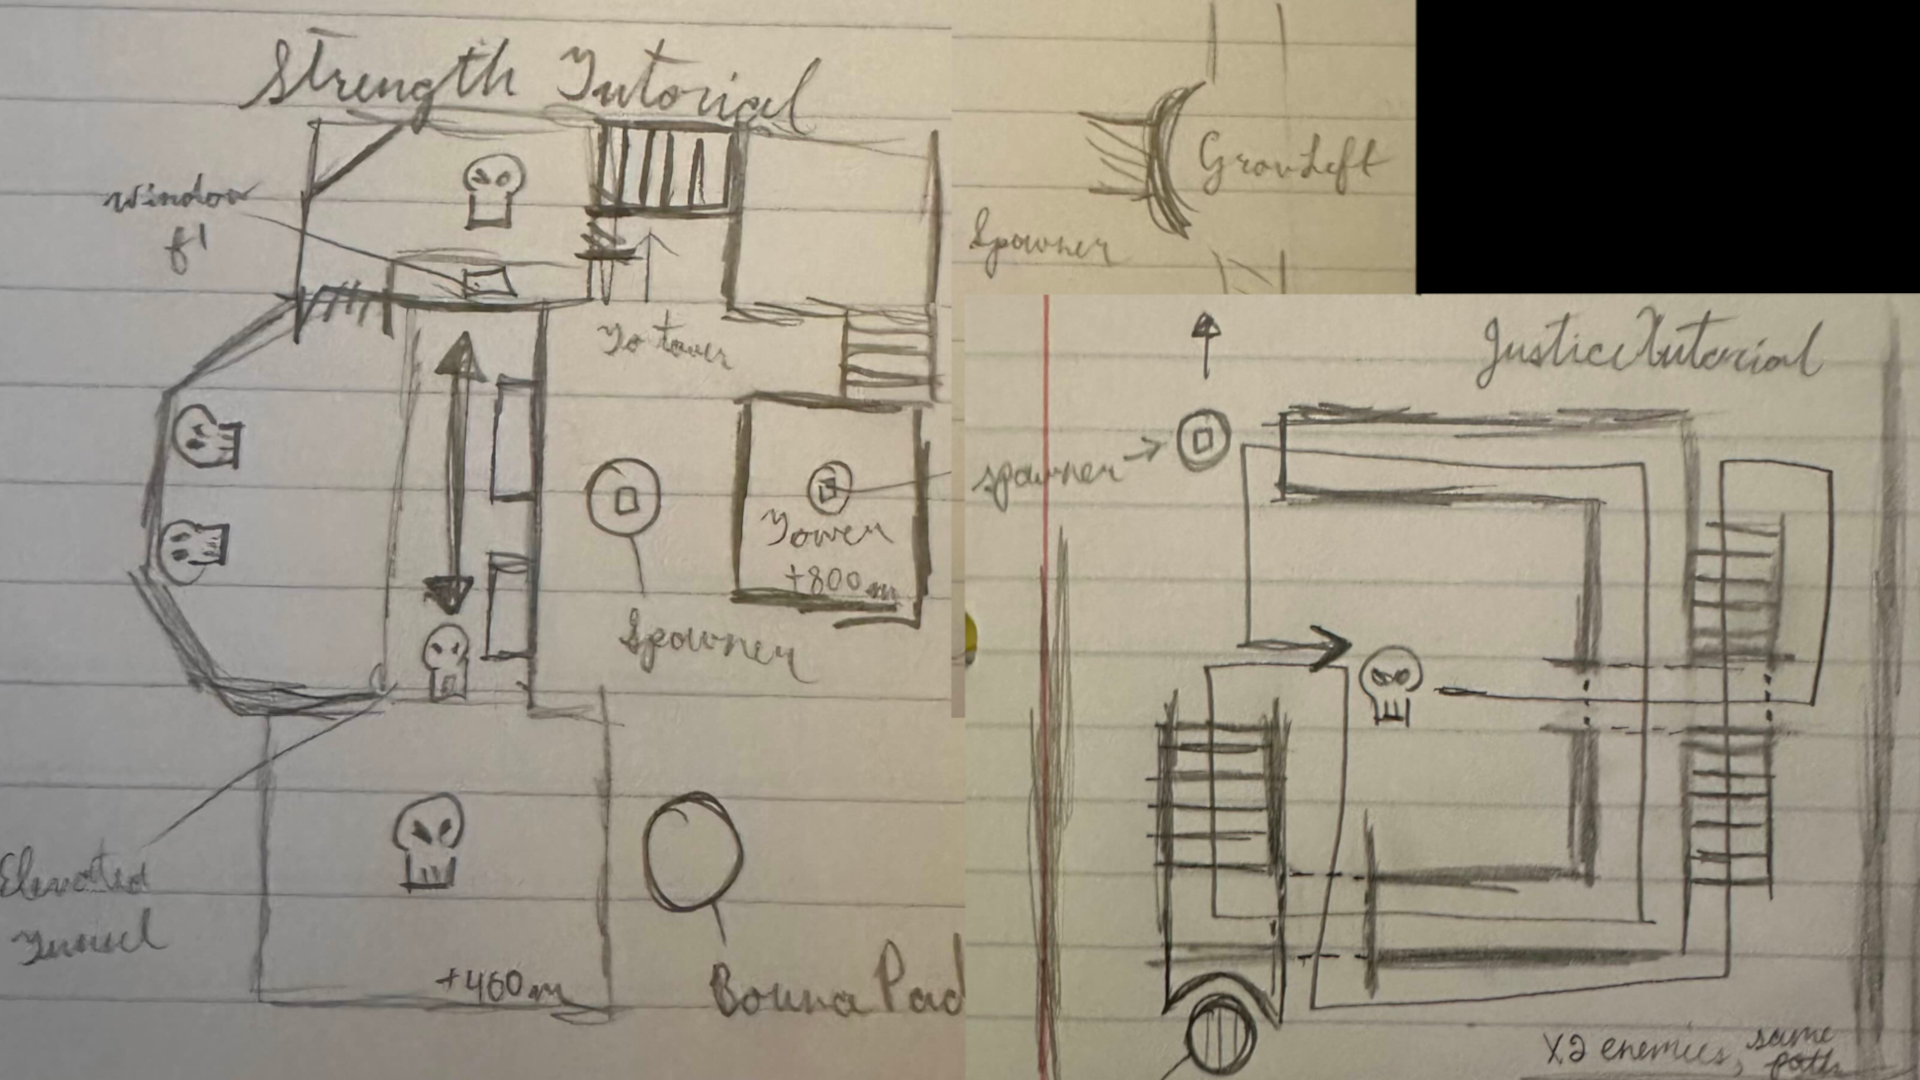 Strength Tutorial
Window
To tower
Spawner
Tower
+800m
Elevated
Tunnel
+460m
Bounce Pad
GravLeft
Spawner
Justice Tutorial
spawner
x2 enemies, same
path